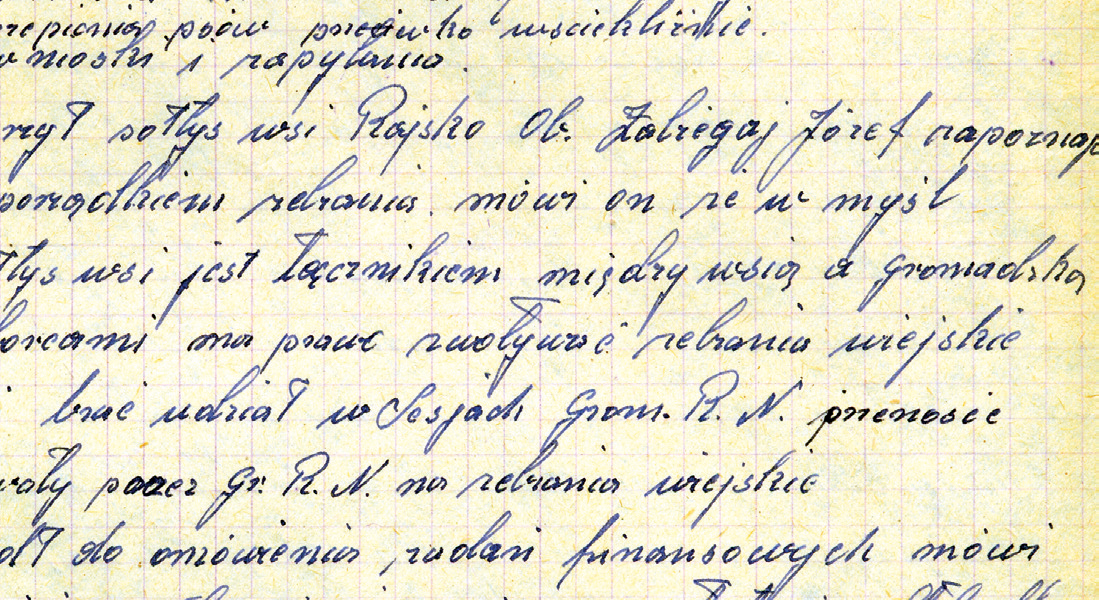 repienia psów przeciwko wsciekliźnie.
wnioski i zapytania.
rzył sołtys wsi Rajsko Ob. Zabiegaj Józef zapoznaje
porządkiem zebrania. mówi on że w myśl
łtys wsi jest łącznikiem między wsią a gromadzką
borcami ma prawo zwoływać zebrania wiejskie
brać udział w Sesjach Grom. R. N. przenosić
wały przez Gr. R. N. na zebrania wiejskie
dł do omówienia zadań finansowych mówi